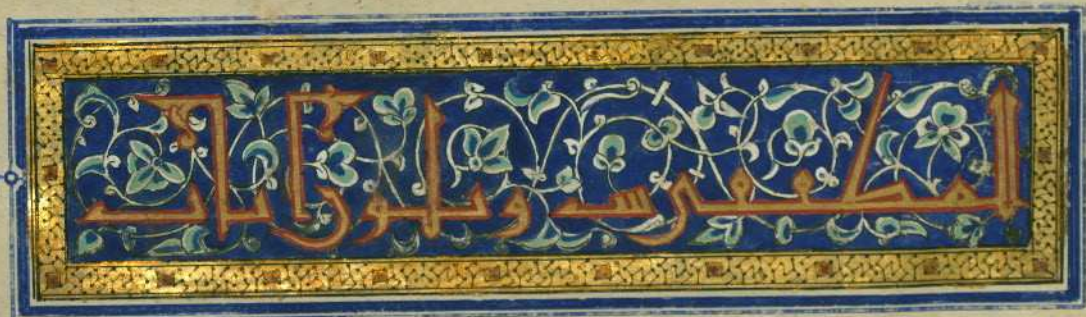 المطففين ست وثلثون ايات